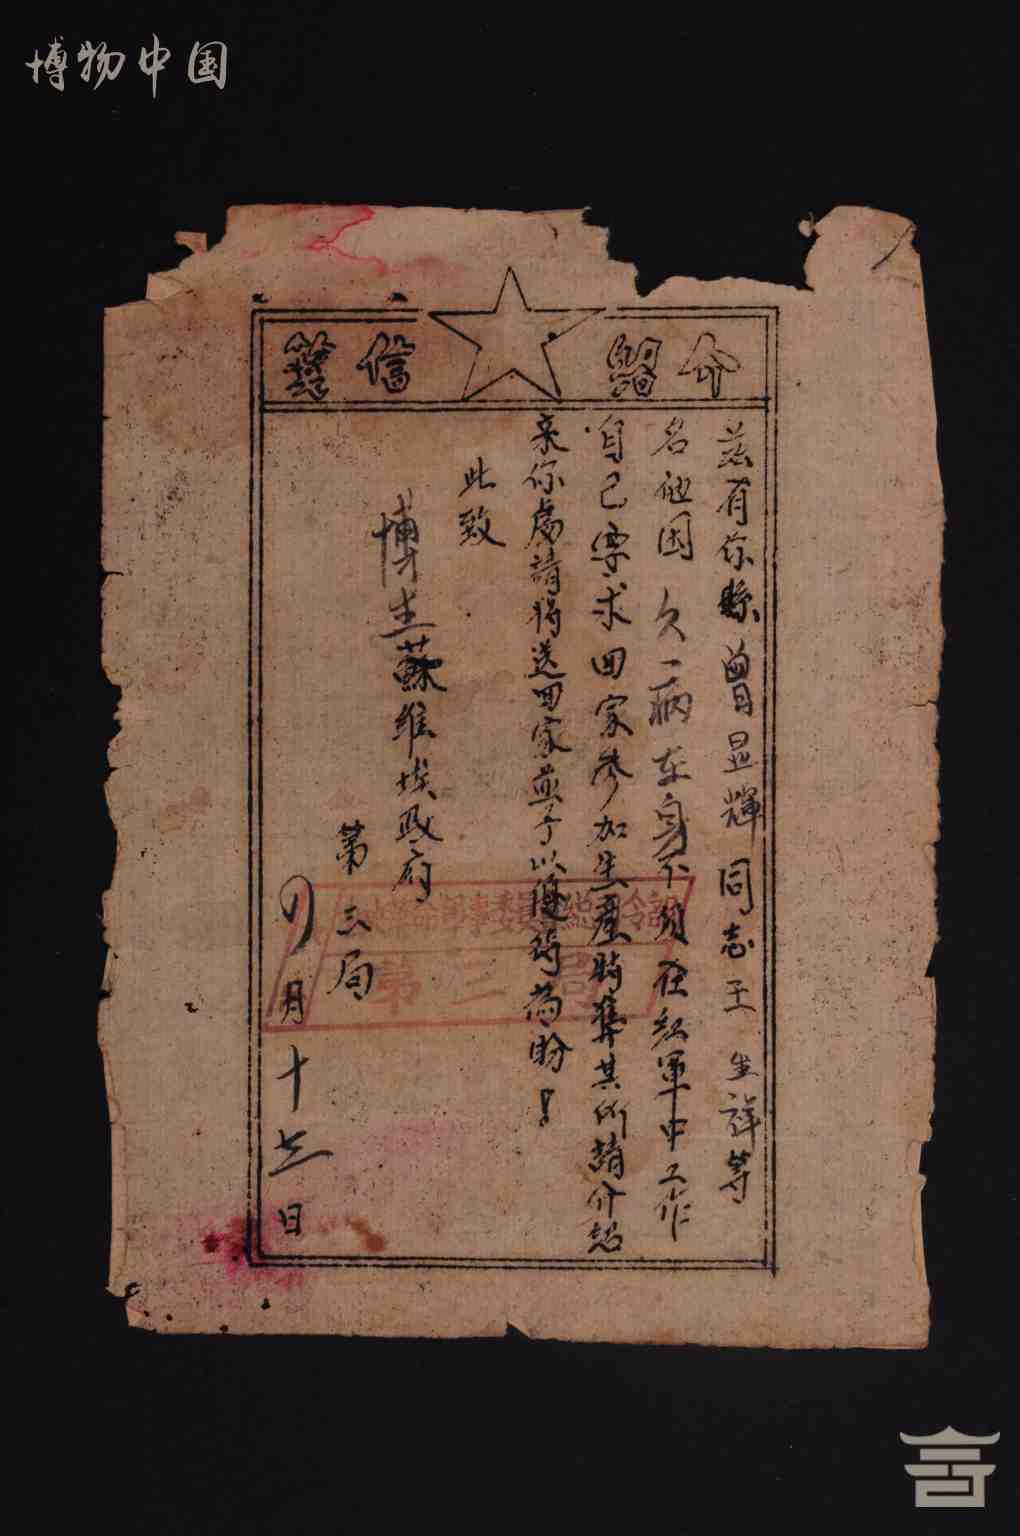 博物中国
介紹信箋
茲有你縣曾显輝同志王生祥等
名他因久病在身不須在紅軍中工作
自己要求回家參加生產時準其所請介紹
来你處請将送回家並予以優待為盼！
此致
博生蘇維埃政府
第三局
月十七日
革命軍事委員 總 令部
第三局